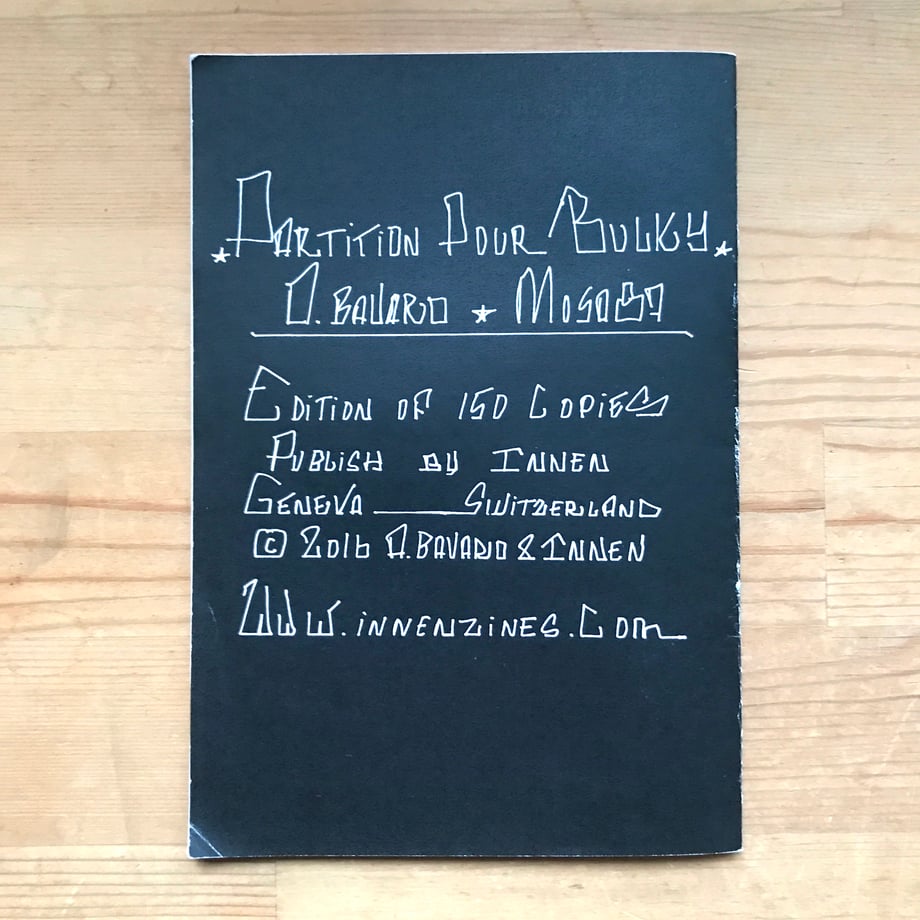 ★PARTITION POUR BULKY★
A. BAVARD ★
EDITION OF 150 COPIES
PUBLISH BY INNEN
GENEVA ____ SWITZERLAND
© 2016 A. BAVARD & INNEN
WWW.INNENZINES.COM